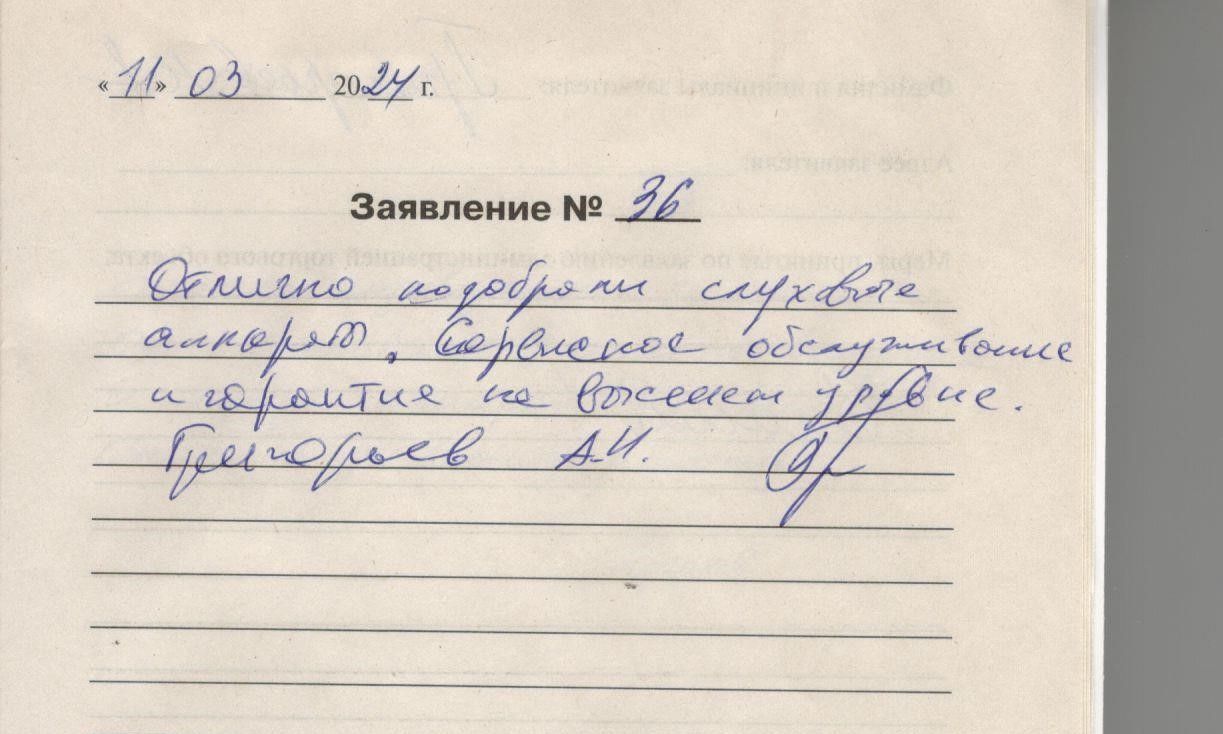 «11» 03 2024 г.
Заявление № 36
Отлично подобрали слуховые
аппараты. Сервисное обслуживание
и гарантия на высоком уровне.
Григорьев А.И.